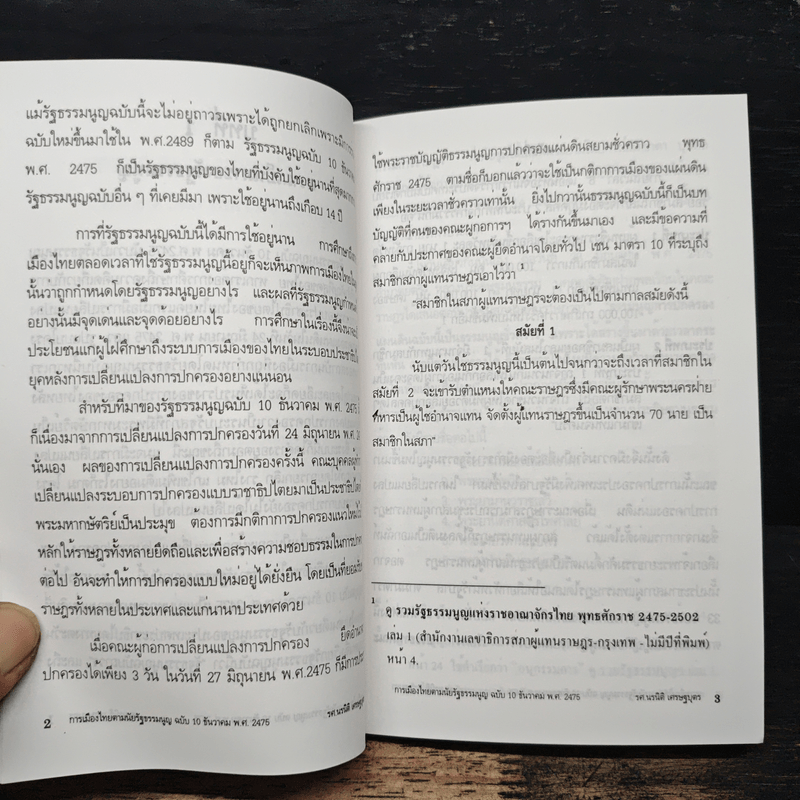 แม้รัฐธรรมนูญฉบับนี้จะไม่อยู่ถาวรเพราะได้ถูกยกเลิกเพราะมีการ
ฉบับใหม่ขึ้นมาใช้ใน พ.ศ.2489 ก็ตาม รัฐธรรมนูญฉบับ 10 ธันวา
พ.ศ. 2475 ก็เป็นรัฐธรรมนูญของไทยที่บังคับใช้อยู่นานที่สุด
รัฐธรรมนูญฉบับอื่น ๆ ที่เคยมีมา เพราะใช้อยู่นานถึงเกือบ 14 ปี
การที่รัฐธรรมนูญฉบับนี้ได้มีการใช้อยู่นาน การศึกษา
เมืองไทยตลอดเวลาที่ใช้รัฐธรรมนูญนี้อยู่ก็จะเห็นภาพการเมืองไทย
นั้นว่าถูกกำหนดโดยรัฐธรรมนูญอย่างไร และผลที่รัฐธรรมนูญกำหนด
อย่างนั้นมีจุดเด่นและจุดด้อยอย่างไร การศึกษาในเรื่องนี้จึง
ประโยชน์แก่ผู้ใฝ่ศึกษาถึงระบบการเมืองของไทยในระบอบประชาธิป
ยุคหลังการเปลี่ยนแปลงการปกครองอย่างแน่นอน
สำหรับที่มาของรัฐธรรมนูญฉบับ 10 ธันวาคม พ.ศ. 2475
ก็เนื่องมาจากการเปลี่ยนแปลงการปกครองวันที่ 24 มิถุนายน พ.ศ.
นั่นเอง ผลของการเปลี่ยนแปลงการปกครองครั้งนี้ คณะบุคคล
เปลี่ยนแปลงระบอบการปกครองแบบราชาธิปไตยมาเป็นประชาธิปไตย
พระมหากษัตริย์เป็นประมุข ต้องการมีกติกาการปกครองแนวใหม่
หลักให้ราษฎรทั้งหลายยึดถือและเพื่อสร้างความชอบธรรมในการปก
ต่อไป อันจะทำให้การปกครองแบบใหม่อยู่ได้ยั่งยืน โดยเป็นที่ยอมรับ
ราษฎรทั้งหลายในประเทศและแก่นานาประเทศด้วย
เมื่อคณะผู้ก่อการเปลี่ยนแปลงการปกครอง ยึดอำนาจ
ปกครองได้เพียง 3 วัน ในวันที่ 27 มิถุนายน พ.ศ.2475 ก็มีการประ
2 การเมืองไทยตามนัยรัฐธรรมนูญ ฉบับ 10 ธันวาคม พ.ศ. 2475 รศ.นรนิติ เศรษฐบุตร
ใช้พระราชบัญญัติธรรมนูญการปกครองแผ่นดินสยามชั่วคราว พุทธ
ศักราช 2475 ตามชื่อก็บอกแล้วว่าจะใช้เป็นกติกาการเมืองของแผ่นดิน
เพียงในระยะเวลาชั่วคราวเท่านั้น ยิ่งไปกว่านั้นธรรมนูญฉบับนี้ก็เป็นบท
บัญญัติที่คนของคณะผู้ก่อการฯ ได้ร่างกันขึ้นมาเอง และมีข้อความที่
คล้ายกับประกาศของคณะผู้ยึดอำนาจโดยทั่วไป เช่น มาตรา 10 ที่ระบุถึง
สมาชิกสภาผู้แทนราษฎรเอาไว้ว่า 1
"สมาชิกในสภาผู้แทนราษฎรจะต้องเป็นไปตามกาลสมัยดังนี้
สมัยที่ 1
นับแต่วันใช้ธรรมนูญนี้เป็นต้นไปจนกว่าจะถึงเวลาที่สมาชิกใน
สมัยที่ 2 จะเข้ารับตำแหน่งให้คณะราษฎรซึ่งมีคณะผู้รักษาพระนครฝ่าย
ทหารเป็นผู้ใช้อำนาจแทน จัดตั้งผู้แทนราษฎรขึ้นเป็นจำนวน 70 นาย เป็น
สมาชิกในสภา"
1
ดู รวมรัฐธรรมนูญแห่งราชอาณาจักรไทย พุทธศักราช 2475-2502
เล่ม 1 (สำนักงานเลขาธิการสภาผู้แทนราษฎร-กรุงเทพ -ไม่มีปีที่พิมพ์)
หน้า 4.
การเมืองไทยตามนัยรัฐธรรมนูญ ฉบับ 10 ธันวาคม พ.ศ. 2475 รศ.นรนิติ เศรษฐบุตร 3